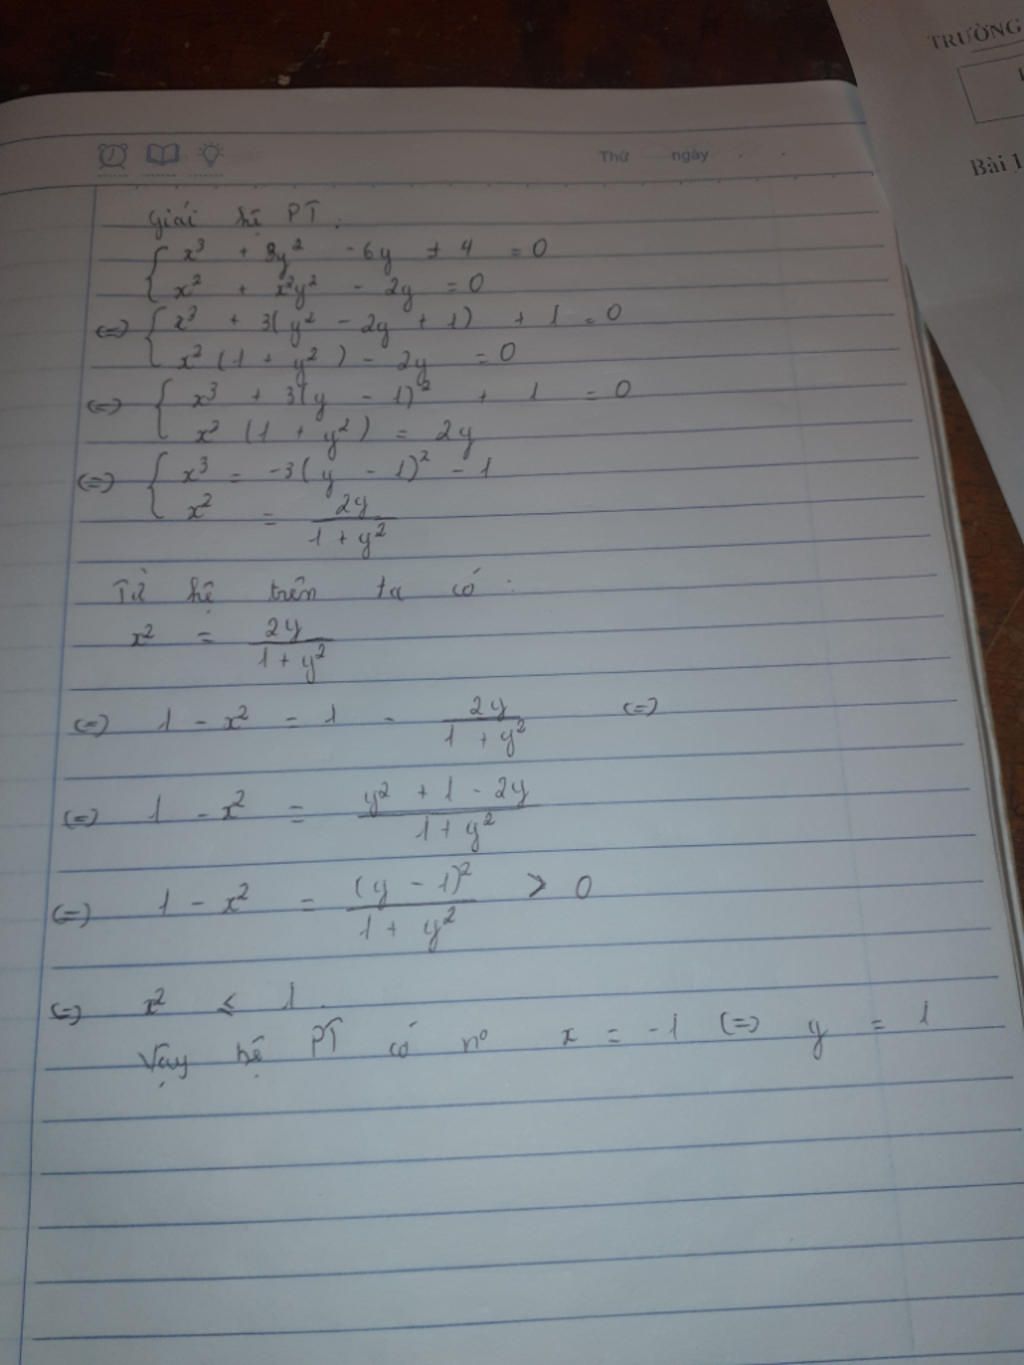 TRƯỜNG
Bài 1
Thứ ngày
Giải hệ PT:
{ x³ + 3y² - 6y + 4 = 0
x² + x²y² - 2y = 0
(=) { x³ + 3(y² - 2y + 1) + 1 = 0
x² (1 + y²) - 2y = 0
(=) { x³ + 3(y - 1)² + 1 = 0
x² (1 + y²) = 2y
(=) { x³ = -3(y - 1)² - 1
x² = 2y / 1 + y²
Từ hệ trên ta có:
x² = 2y / 1 + y²
(=) 1 - x² = 1 - 2y / 1 + y² (=)
(=) 1 - x² = y² + 1 - 2y / 1 + y²
(=) 1 - x² = (y - 1)² / 1 + y² > 0
(=) x² ≤ 1.
Vậy hệ PT có nº x = -1 (=) y = 1